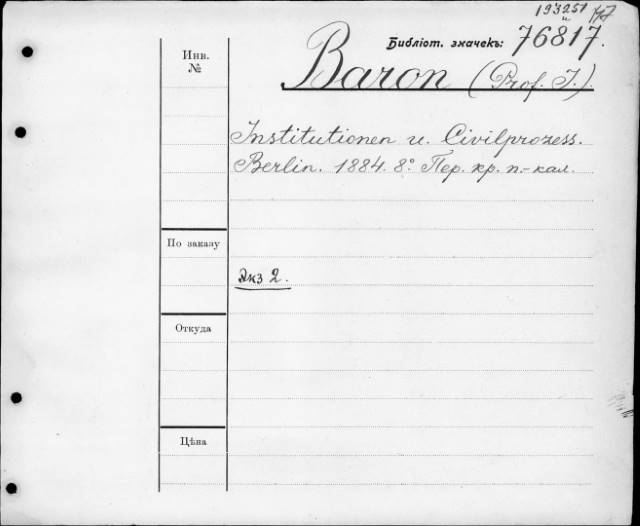 193251 и
Библіот. значекъ: 76817.
Инв. №
Baron (Prof. J.).
Institutionen u. Civilprozess.
Berlin. 1884. 8° Пер. кр. п.-кал.
По заказу
Экз 2.
Откуда
Цѣна